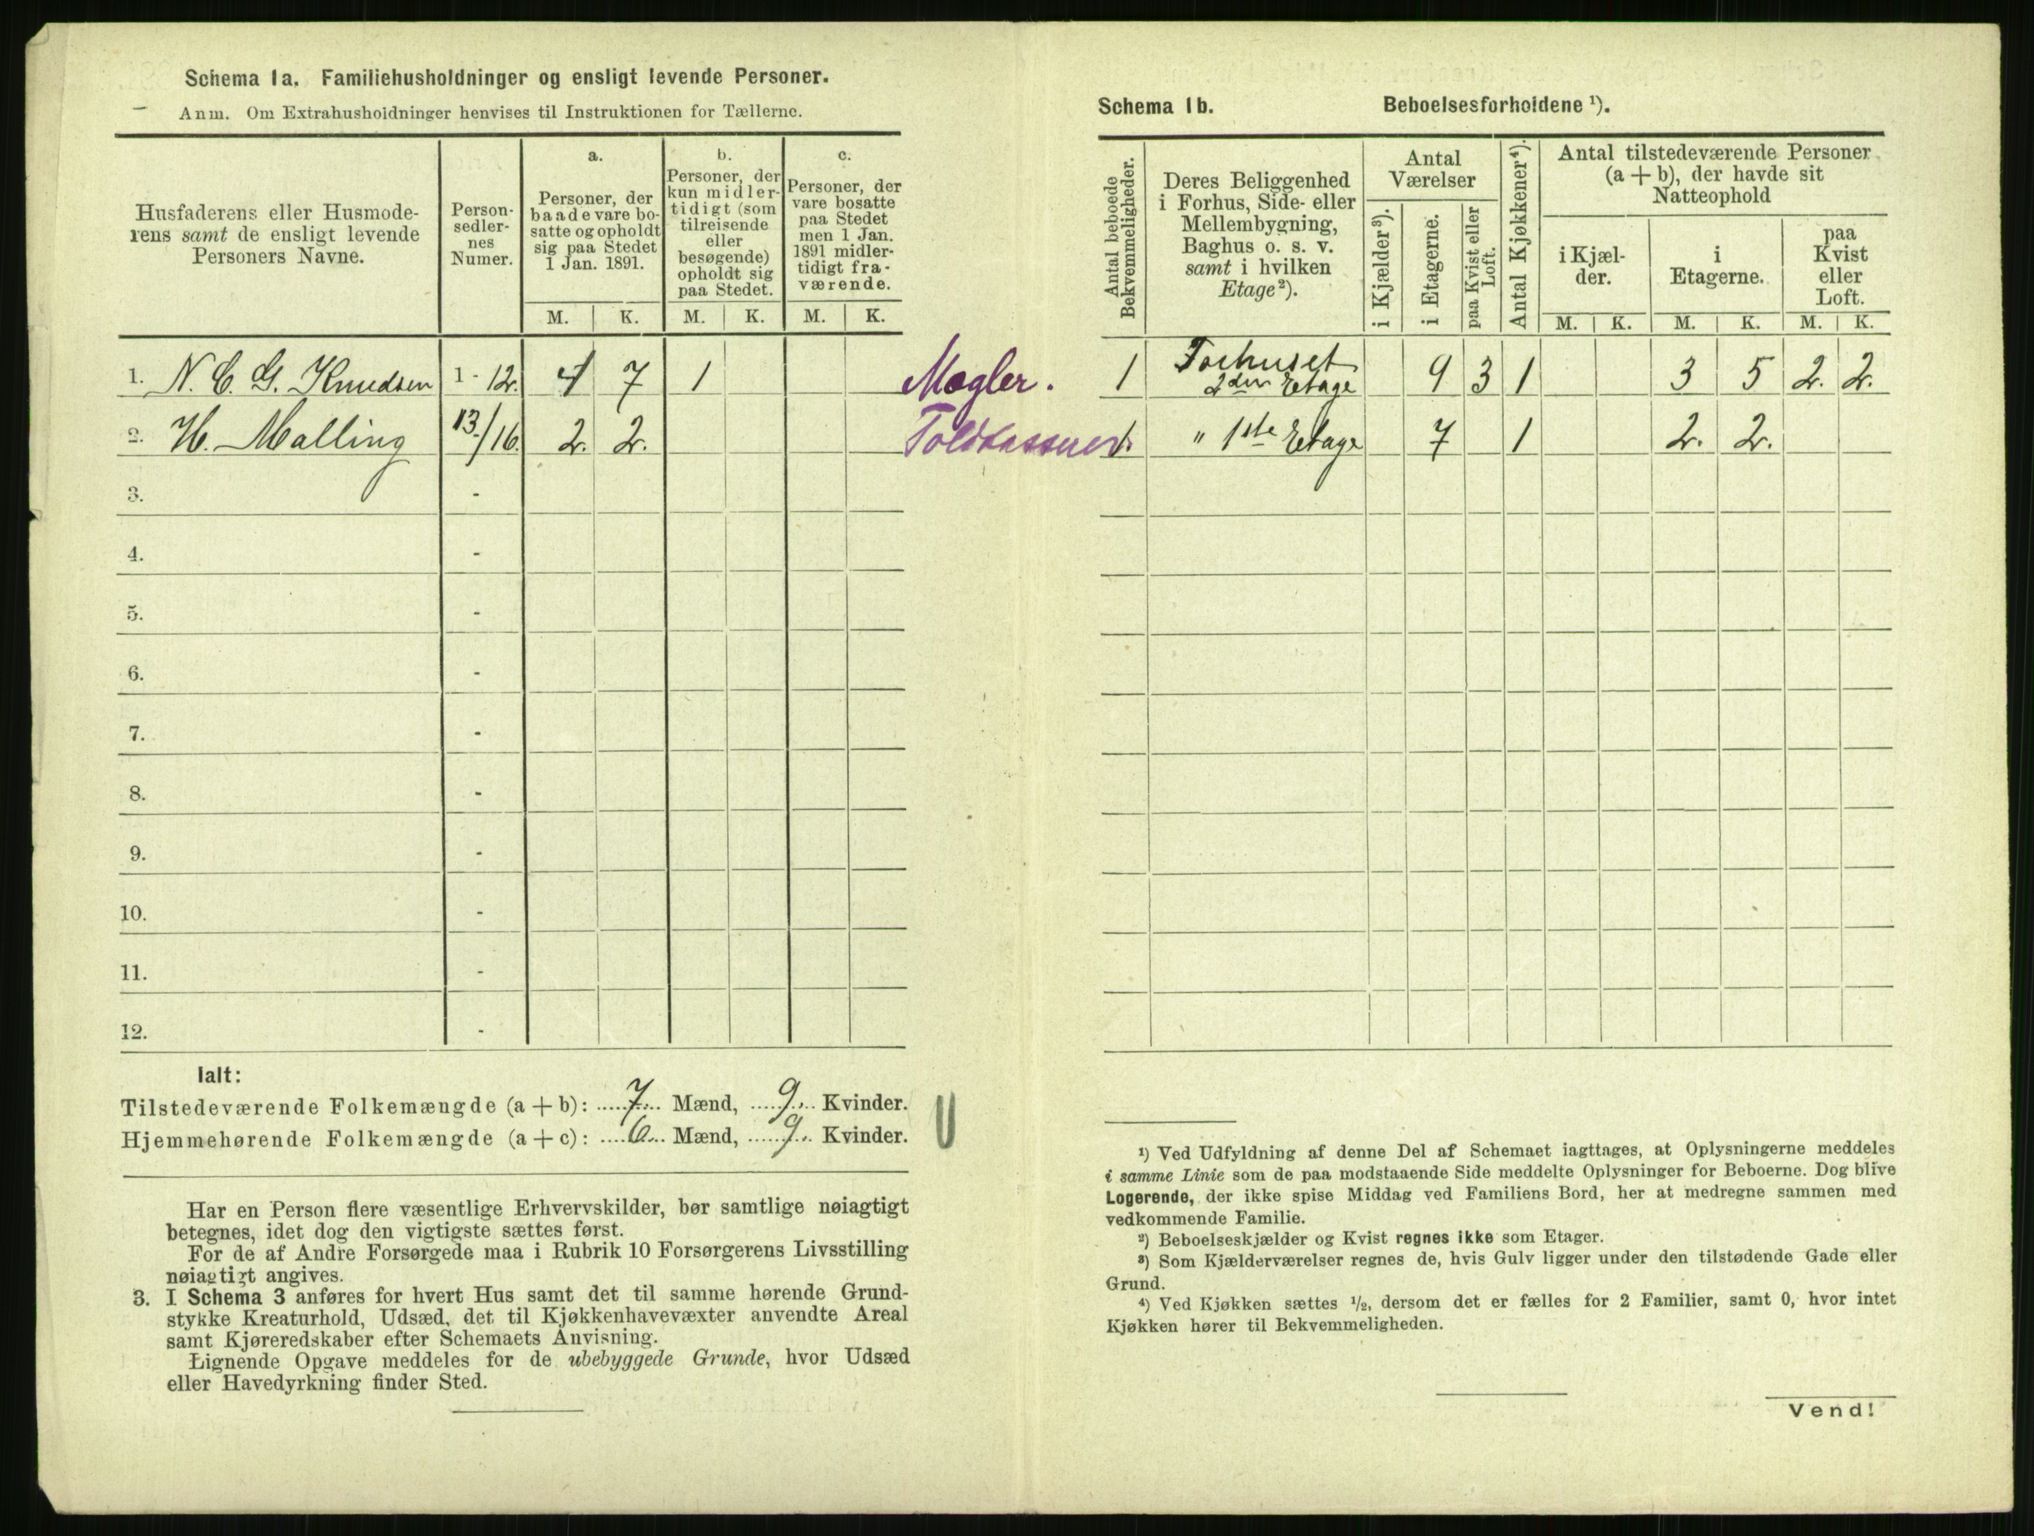 Schema 1a. Familiehusholdninger og ensligt levende Personer.
Anm. Om Extrahusholdninger henvises til Instruktionen for Tællerne.
Husfaderens eller Husmode-
rens samt de ensligt levende
Personers Navne.
Person-
sedler-
nes
Numer.
a.
Personer, der
baade vare bo-
satte og opholdt
sig paa Stedet
1 Jan. 1891.
b.
Personer, der
kun midler-
tidigt (som
tilreisende
eller
besøgende)
opholdt sig
paa Stedet.
c.
Personer, der
vare bosatte
paa Stedet
men 1 Jan.
1891 midler-
tidigt fra-
værende.
M. K. M. K. M. K.
1. N. C. G. Knudsen 1 - 12. 4 7 1 Mægler.
2. H. Malling 13/16. 2. 2. Toldkasserer
3. -
4. -
5. -
6. -
7. -
8. -
9. -
10. -
11. -
12. -
Ialt:
Tilstedeværende Folkemængde (a + b): 7 Mænd, 9 Kvinder.
Hjemmehørende Folkemængde (a + c): 6 Mænd, 9 Kvinder.
Har en Person flere væsentlige Erhvervskilder, bør samtlige nøiagtigt
betegnes, idet dog den vigtigste sættes først.
For de af Andre Forsørgede maa i Rubrik 10 Forsørgerens Livsstilling
nøiagtigt angives.
3. I Schema 3 anføres for hvert Hus samt det til samme hørende Grund-
stykke Kreaturhold, Udsæd, det til Kjøkkenhavevæxter anvendte Areal
samt Kjøreredskaber efter Schemaets Anvisning.
Lignende Opgave meddeles for de ubebyggede Grunde, hvor Udsæd
eller Havedyrkning finder Sted.
Schema 1b. Beboelsesforholdene ¹).
Antal beboede
Bekvemmeligheder.
Deres Beliggenhed
i Forhus, Side- eller
Mellembygning,
Baghus o. s. v.
samt i hvilken
Etage²).
Antal
Værelser
i Kjælder³).
i Etagerne.
paa Kvist eller
Loft.
Antal Kjøkkener⁴).
Antal tilstedeværende Personer
(a + b), der havde sit
Natteophold
i Kjæl-
der.
i
Etagerne.
paa
Kvist
eller
Loft.
M. K. M. K. M. K.
1 Forhuset
2den Etage 9 3 1 3 5 2. 2.
1. " 1ste Etage 7 1 2. 2.
¹) Ved Udfyldning af denne Del af Schemaet iagttages, at Oplysningerne meddeles
i samme Linie som de paa modstaaende Side meddelte Oplysninger for Beboerne. Dog blive
Logerende, der ikke spise Middag ved Familiens Bord, her at medregne sammen med
vedkommende Familie.
²) Beboelseskjælder og Kvist regnes ikke som Etager.
³) Som Kjælderværelser regnes de, hvis Gulv ligger under den tilstødende Gade eller
Grund.
⁴) Ved Kjøkken sættes ¹/₂, dersom det er fælles for 2 Familier, samt 0, hvor intet
Kjøkken hører til Bekvemmeligheden.
Vend!